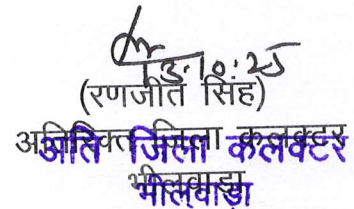 13.10.25
(रणजीत सिंह)
अतिरिक्त जिला कलक्टर
अति जिला कलेक्टर
भीलवाड़ा
भीलवाड़ा